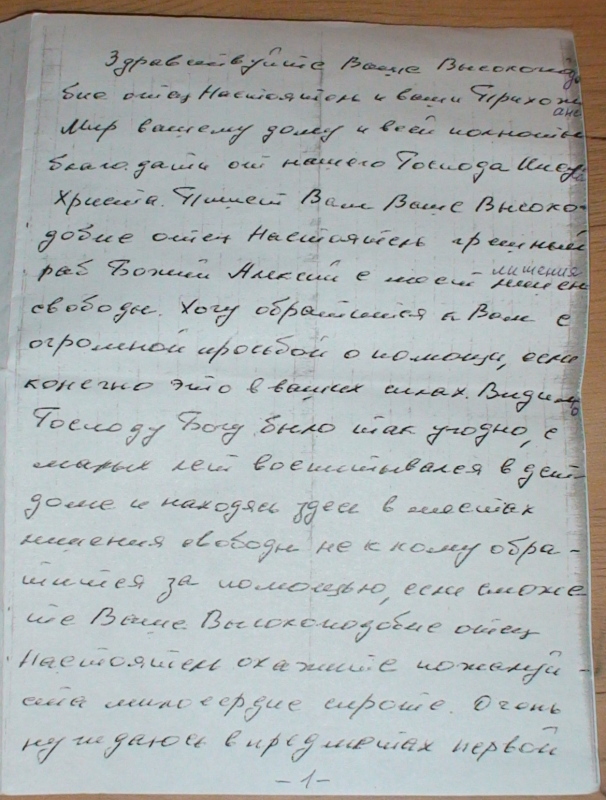 Здравствуйте Ваше Высокоподо
бие отец Настоятель и ваши Прихожане
Мир вашему дому и всей полноты
благодати от нашего Господа Иисуса
Христа. Пишет Вам Ваше Высоко-
добие отец Настоятель грешный
раб Божий Алексий с мест лишения
свободы. Хочу обратится к Вам с
огромной просьбой о помощи, если
конечно это в ваших силах. Видимо
Господу Богу было так угодно, с
малых лет воспитывался в дет-
доме и находясь здесь в местах
лишения свободы не к кому обра-
тится за помощью, если сможе
те Ваше Высокоподобие отец
Настоятель окажите пожалуй-
ста милосердие сироте. Очень
нуждаюсь в предметах первой
-1-